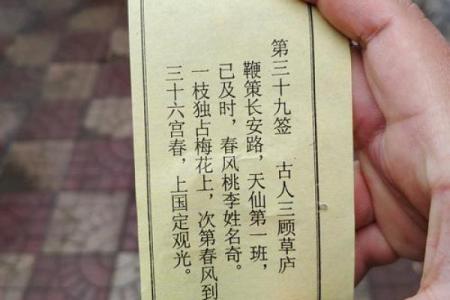 第三十九签　古人三顾草庐
鞭策长安路，天仙第一班，
已及时，春风桃李姓名奇。
一枝独占梅花上，次第春风到
三十六宫春，上国定观光。